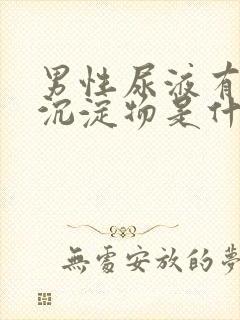 男性尿液有
沉淀物是什
無處安放的夢